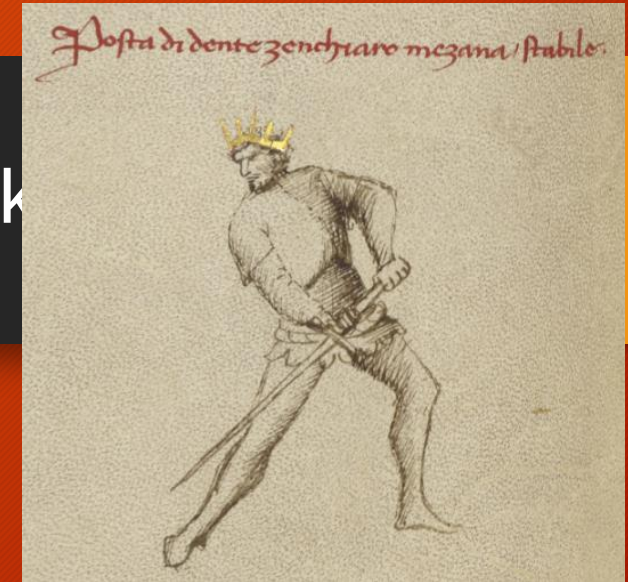 Posta di dente zenchiaro mezana / stabile.
k